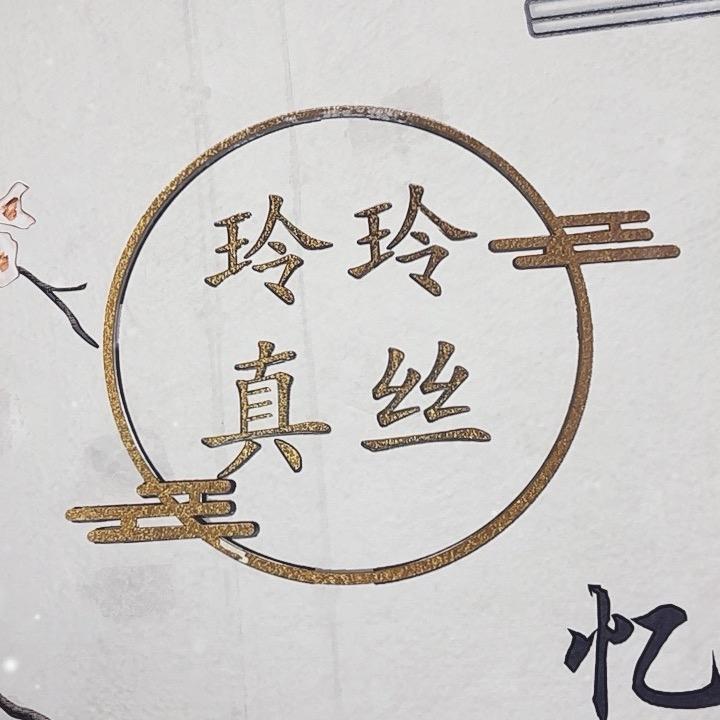 玲玲
真丝
忆